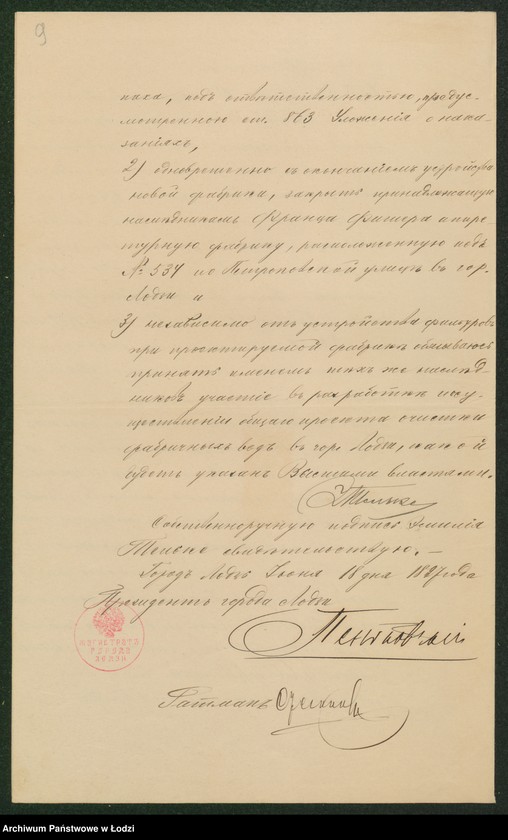 9
паха, подъ отвѣтственностью, предус-
мотренною ст. 863 Уложенія о нака-
заніяхъ,
2) одновременно съ окончаніемъ устройства
новой фабрики, закрыть принадлежащую
наслѣдникамъ Франца Фишера аппре-
турную фабрику, расположенную подъ
№ 534 по Петроковской улицѣ въ гор.
Лодзи и
3) независимо отъ устройства фильтровъ
при проэктируемой фабрикѣ обязываюсь
принять именемъ тѣхъ же наслѣд-
никовъ участіе въ разработкѣ и осу-
ществленіи общаго проэкта очистки
фабричныхъ водъ въ гор. Лодзи, какой
будетъ указанъ Высшими властями.
Собственноручную подпись Эмилія
свидѣтельствую. —
Городъ Лодзь Іюня 18 дня 1887 года
Президентъ города Лодзи
Пеньковскій
МАГИСТРАТЪ
ГОРОДА
ЛОДЗИ
Ратманъ
Archiwum Państwowe w Łodzi